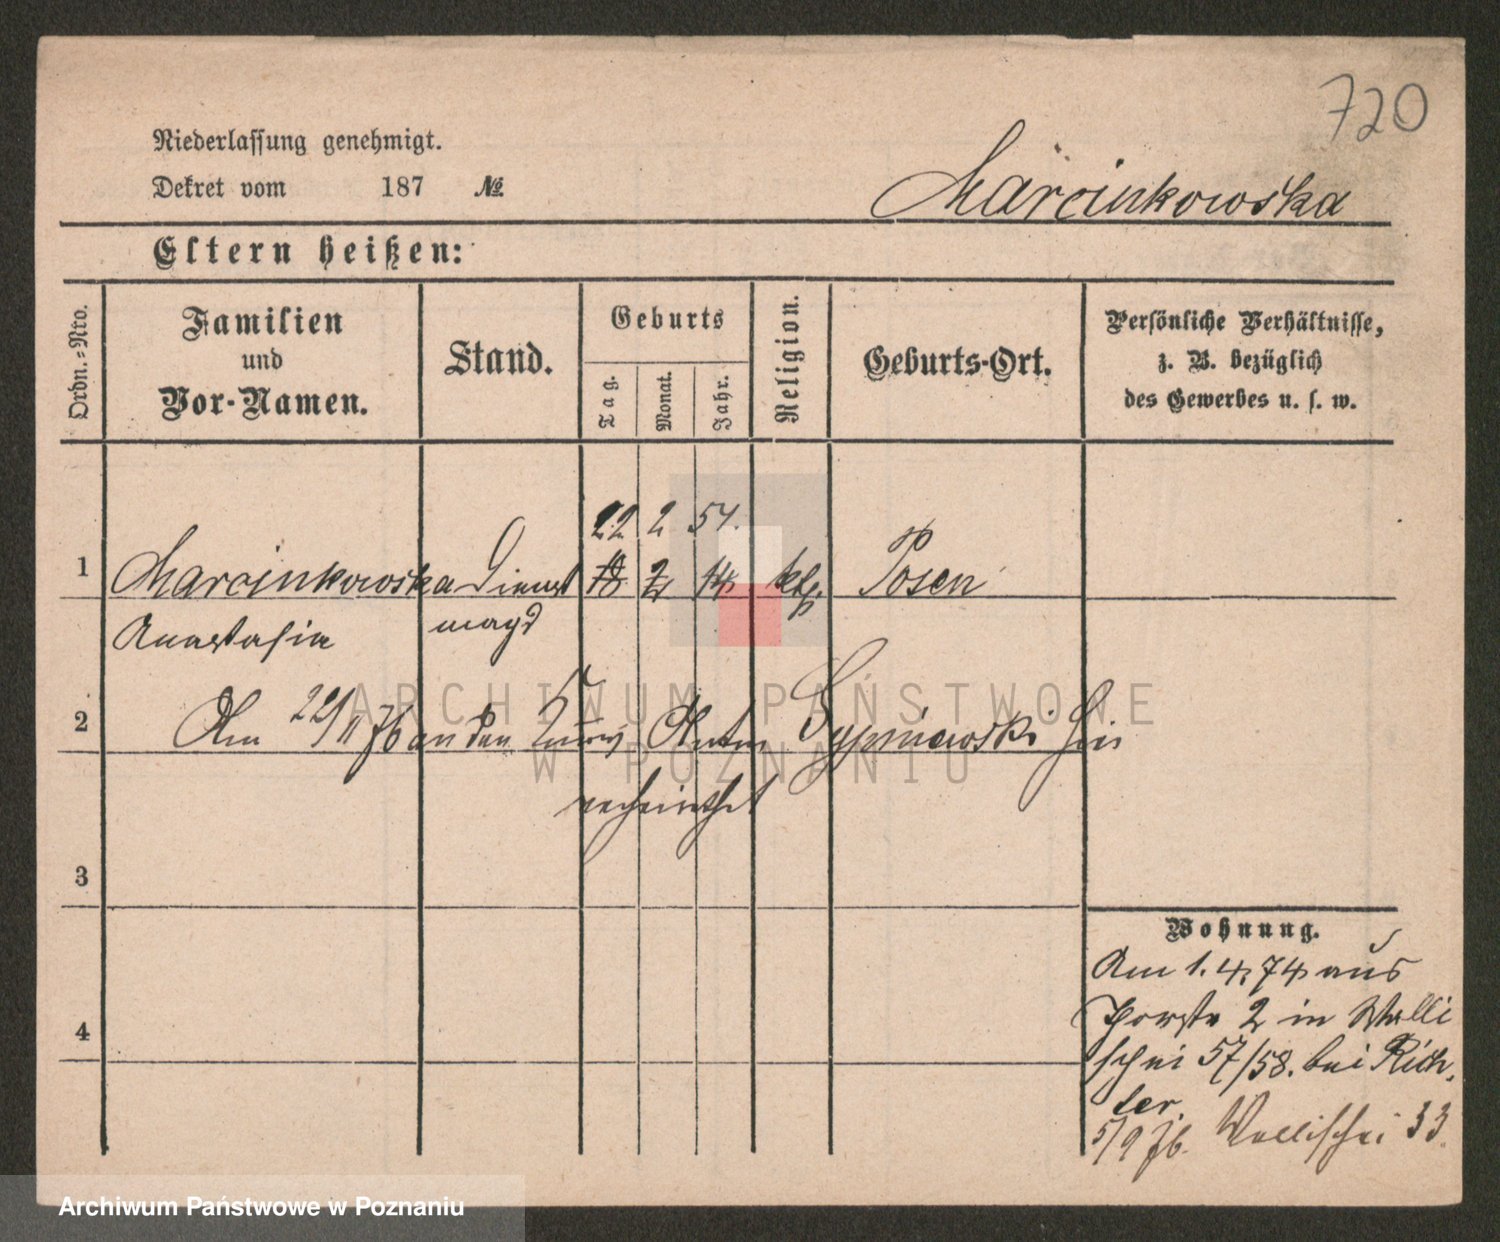 720
Niederlassung genehmigt.
Dekret vom 187 №
Marcinkowska
Eltern heißen:
Ordn.=Nro.
Familien
und
Vor-Namen.
Stand.
Geburts
Tag.
Monat.
Jahr.
Religion.
Geburts-Ort.
Persönliche Verhältnisse,
z. B. bezüglich
des Gewerbes u. s. w.
22 2 54.
1 Marcinkowska Dienst 18 2 14 kth. Posen
Anastasia magd
2 Am 22/11 76 an den Anton Sypniewski hier
verheirathet
3
Wohnung.
Am 1. 4. 74 aus
2 in Walli
4
schei 57/58. bei Rich,
ter.
5/9 76. Wallischei 33.
ARCHIWUM PAŃSTWOWE
W POZNANIU
Archiwum Państwowe w Poznaniu